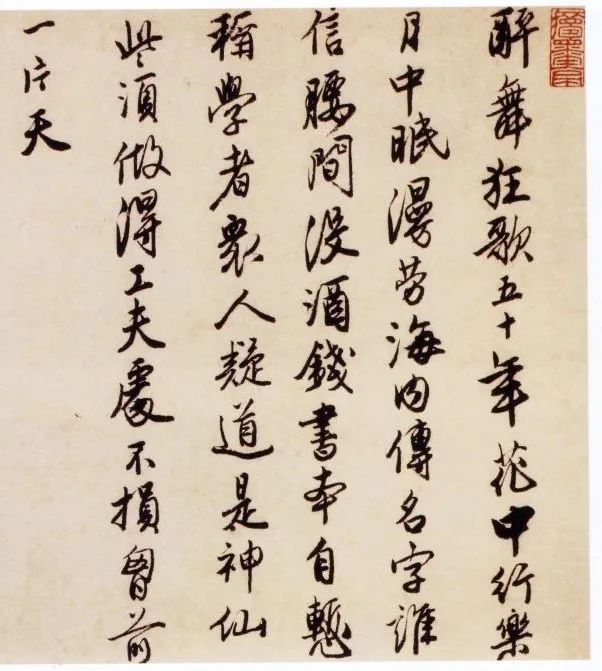 醉舞狂歌五十年花中行樂
月中眠漫勞海内傳名字誰
信腰間没酒錢書本自慙
稱學者衆人疑道是神仙
些須做得工夫處不損胷前
一片天